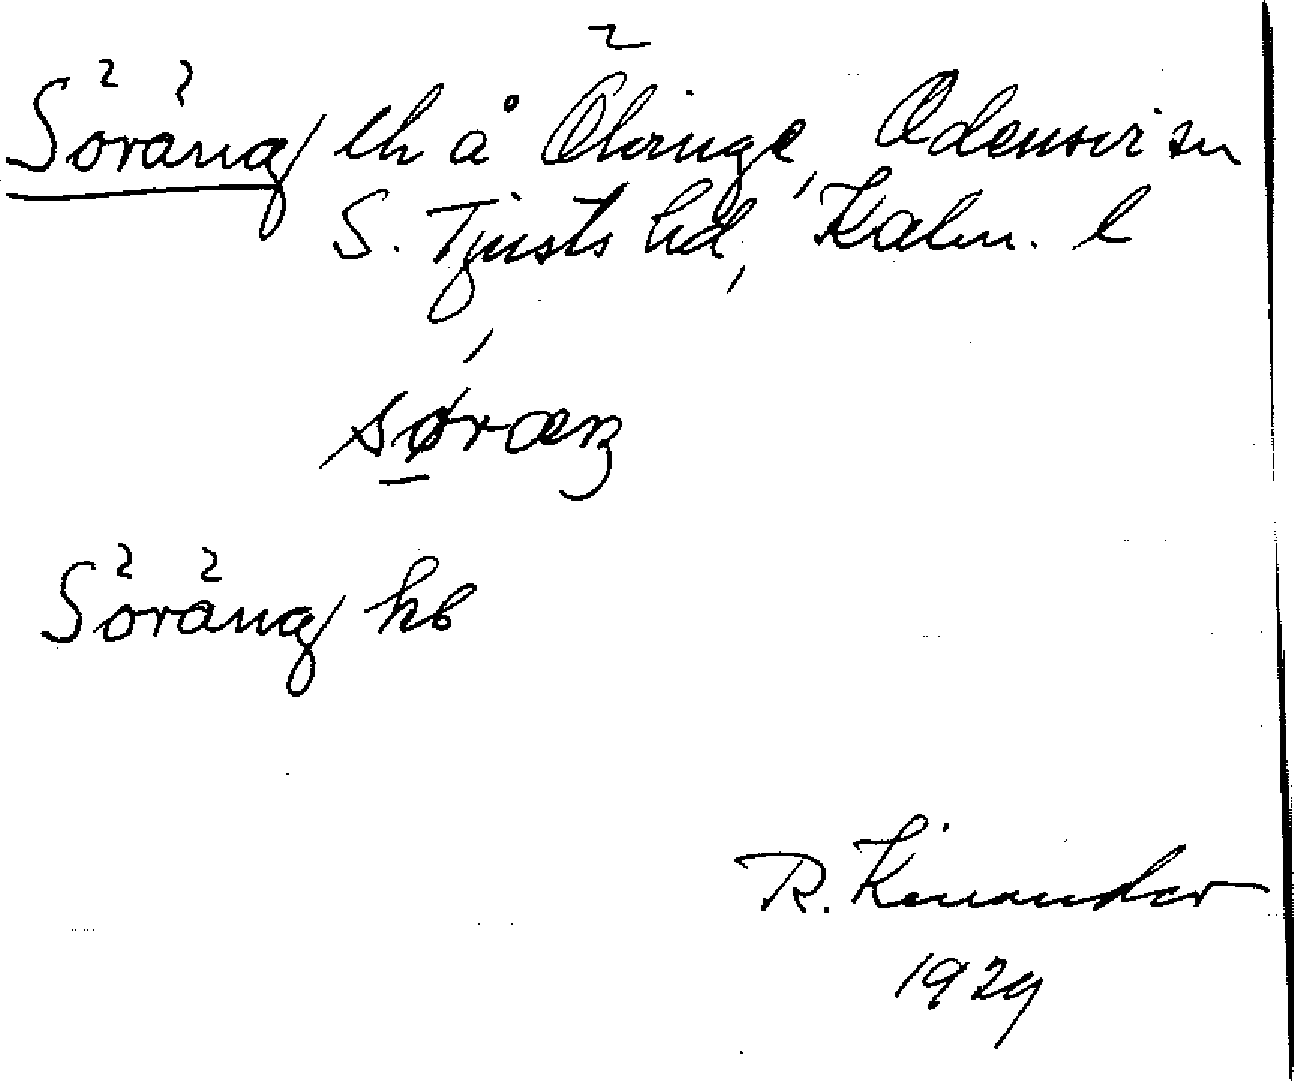 Söräng lh å Ölvinge, Odensvi sn
S. Tjusts hd, Kalm. l
søræŋ
Söräng kb
R. Kinander
1929